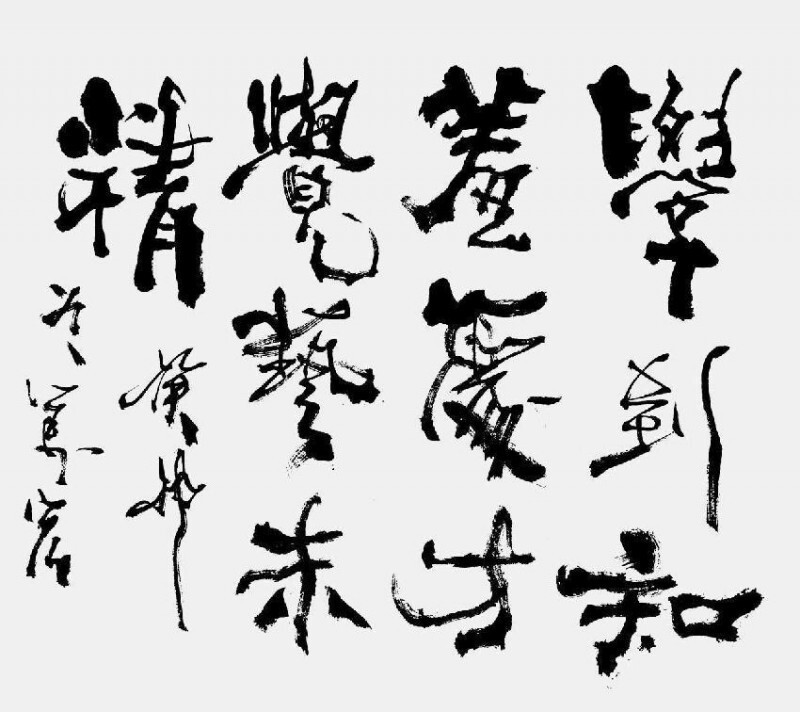 學到知
羞處方
覺藝未
精